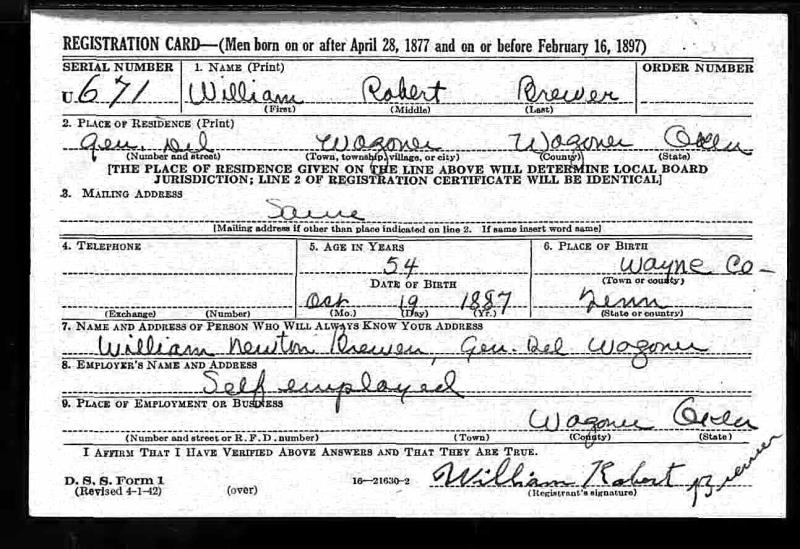 REGISTRATION CARD—(Men born on or after April 28, 1877 and on or before February 16, 1897)
SERIAL NUMBER 1. NAME (Print) ORDER NUMBER
U 671 William Robert Brewer
(First) (Middle) (Last)
2. PLACE OF RESIDENCE (Print)
Gen. Del Wagoner Wagoner Okla
(Number and street) (Town, township, village, or city) (County) (State)
[THE PLACE OF RESIDENCE GIVEN ON THE LINE ABOVE WILL DETERMINE LOCAL BOARD
JURISDICTION; LINE 2 OF REGISTRATION CERTIFICATE WILL BE IDENTICAL]
3. MAILING ADDRESS
Same
[Mailing address if other than place indicated on line 2. If same insert word same]
4. TELEPHONE 5. AGE IN YEARS 6. PLACE OF BIRTH
54 Wayne Co-
DATE OF BIRTH (Town or county)
Oct 19 1887 Tenn
(Exchange) (Number) (Mo.) (Day) (Yr.) (State or country)
7. NAME AND ADDRESS OF PERSON WHO WILL ALWAYS KNOW YOUR ADDRESS
William Newton Brewer, Gen. Del Wagoner
8. EMPLOYER'S NAME AND ADDRESS
Self employed
9. PLACE OF EMPLOYMENT OR BUSINESS
Wagoner Okla
(Number and street or R. F. D. number) (Town) (County) (State)
I AFFIRM THAT I HAVE VERIFIED ABOVE ANSWERS AND THAT THEY ARE TRUE.
D. S. S. Form 1 William Robert Brewer
(Revised 4-1-42) (over) 16—21630-2 (Registrant's signature)